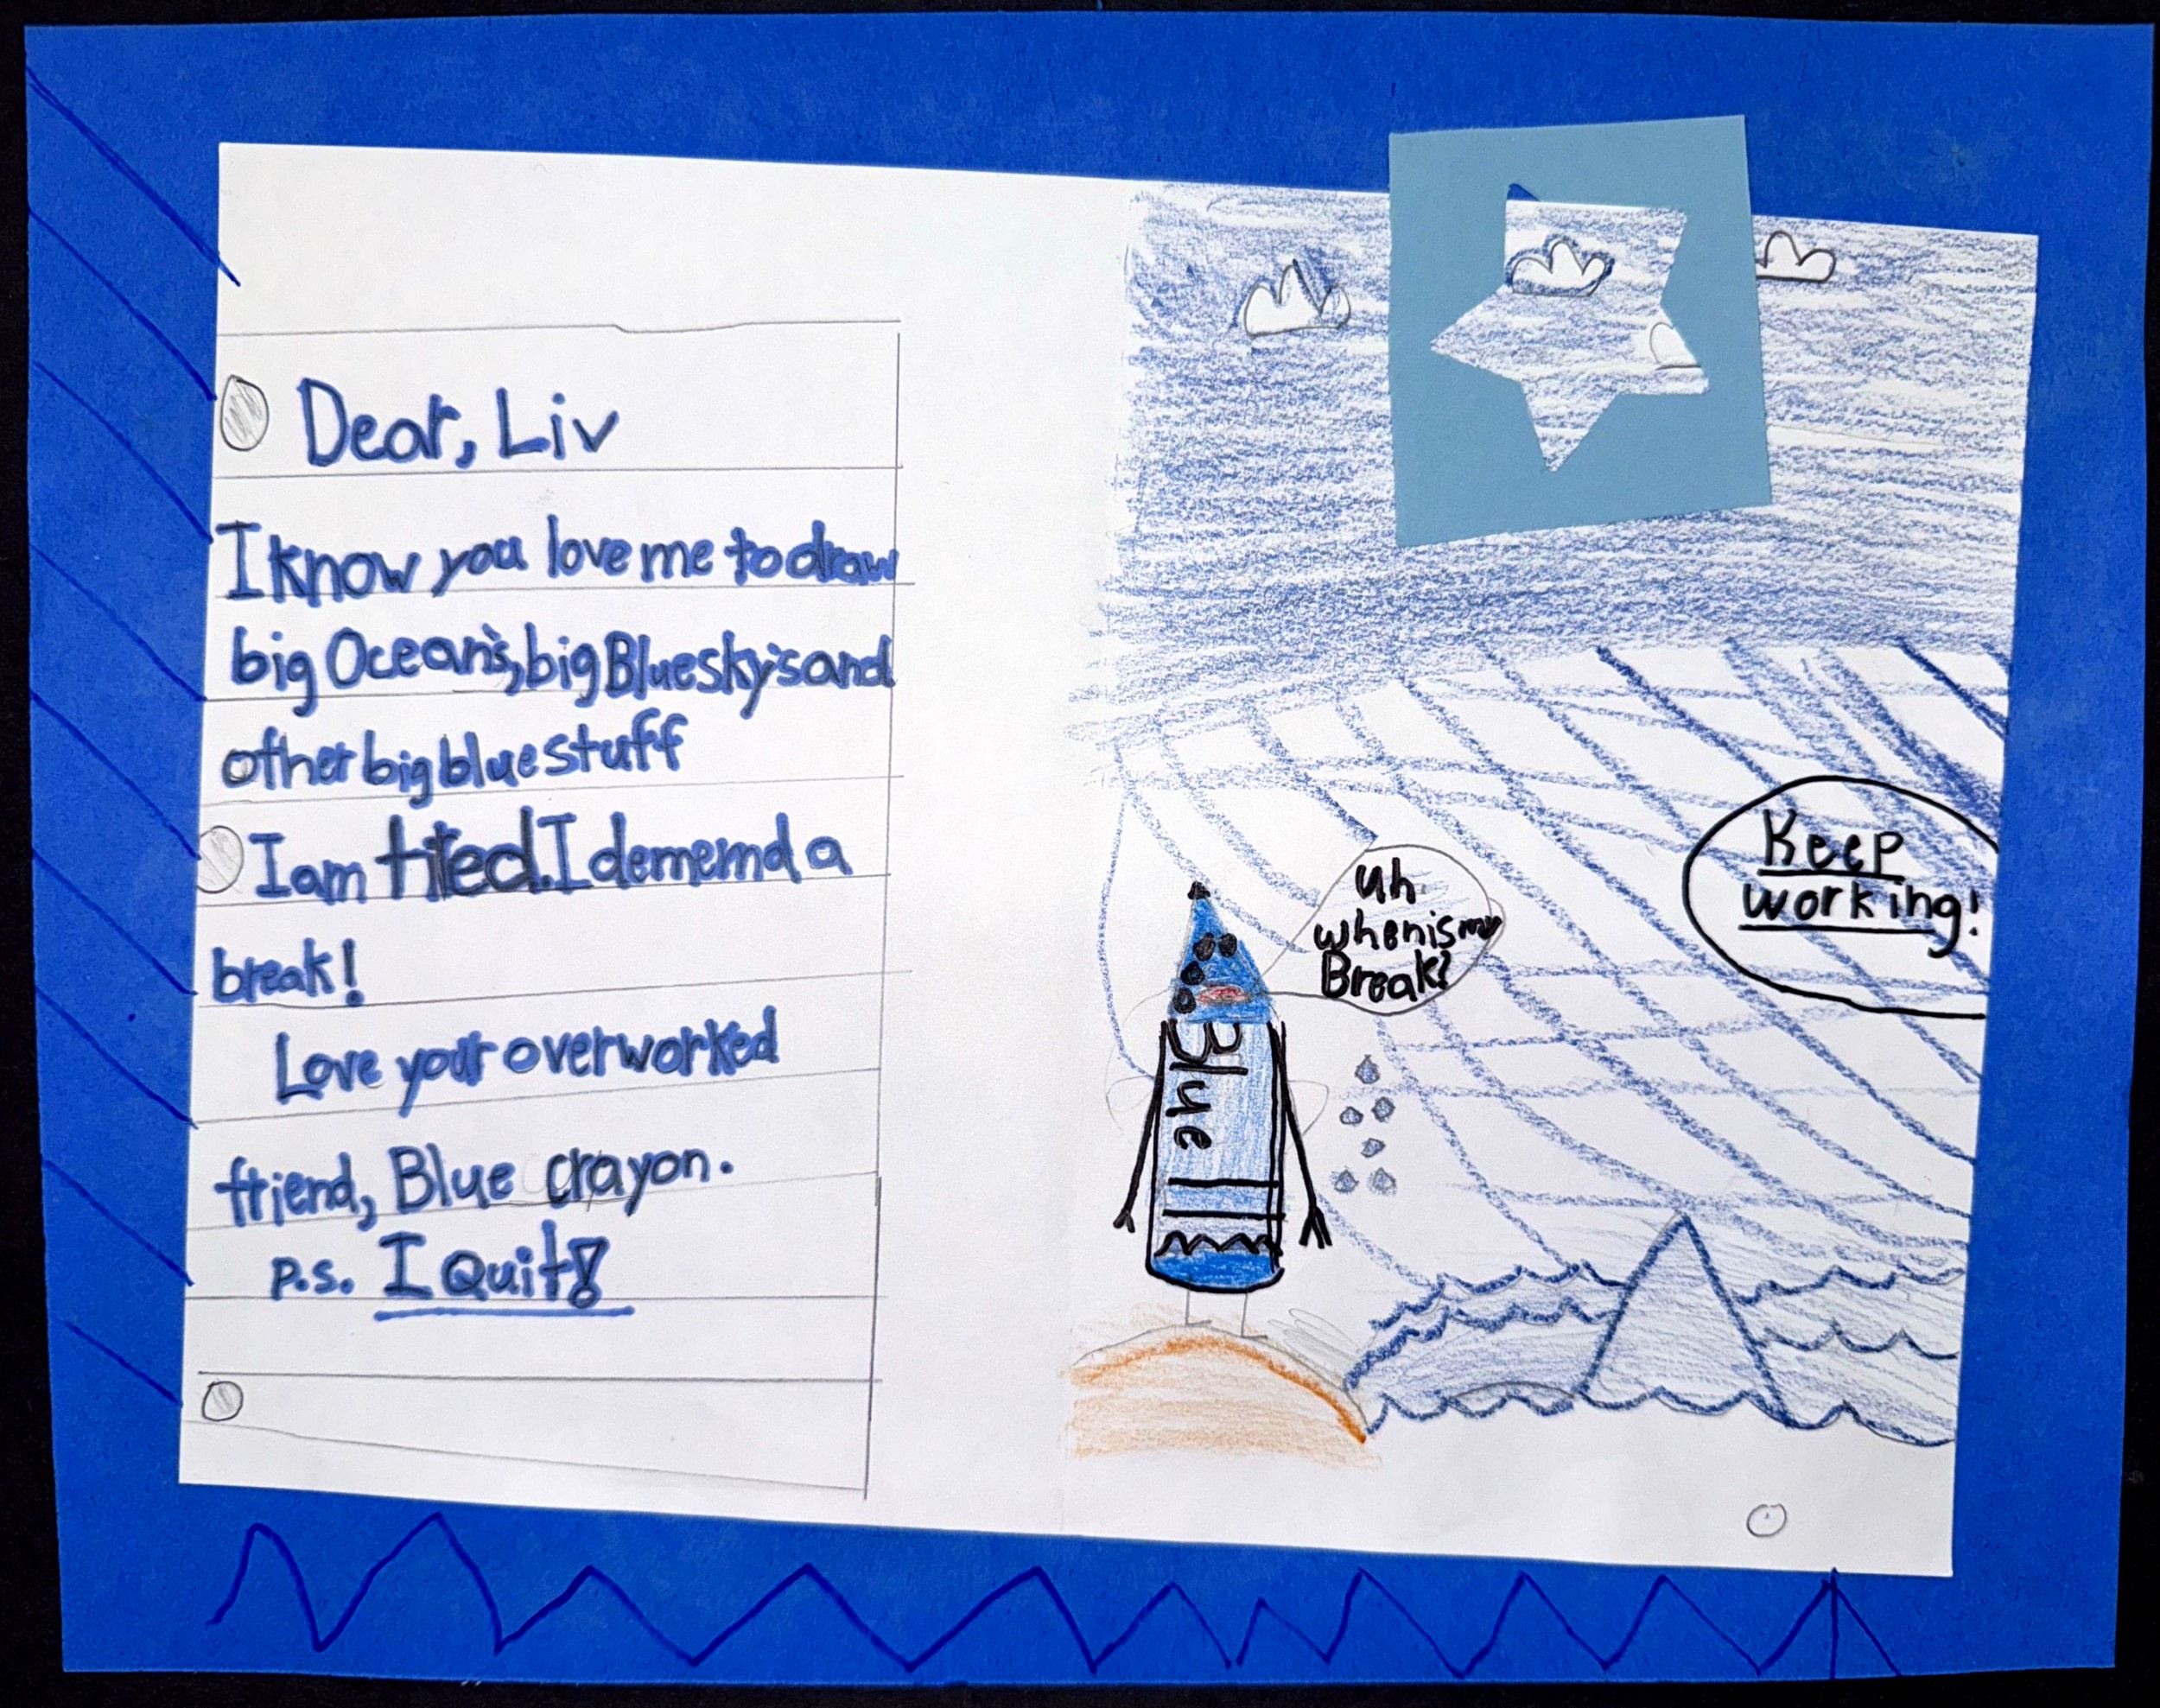 Dear, Liv
I know you love me to draw
big Ocean's, big Blue sky's and
other big blue stuff
I am tired. I dememd a
break!
Love your overworked
friend, Blue crayon.
p.s. I Quit!
Uh
when is my
Break?
Keep
working!
Blue